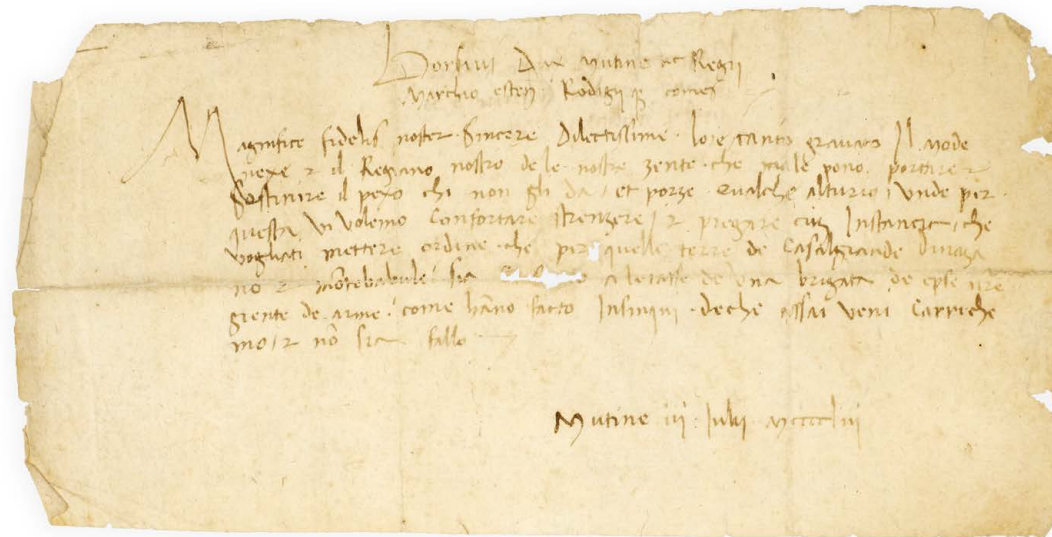 Borsius Dux Mutine ac Regij
Marchio esten Rodigij q comes
Magnifice fidelis noster Sincere Dilectissime. tanto gravato Il Mode
nexe & il Regiano nostro de le nostre zente che male pono portare &
Sostinire il pexo chi non gli da et porze qualche alturio / Unde per
questa vi volemo Confortare strenzere / & pregare cum Instancia che
vogliati mettere ordine che per quelle terre de Casalgrande Dinaza
no & sia a le taxe de una brigata de epse nre
gente de arme come hano facto Insinqui deche assai veni Carriche
mo / & no sia fallo
Mutine iij Julij Mccccliij